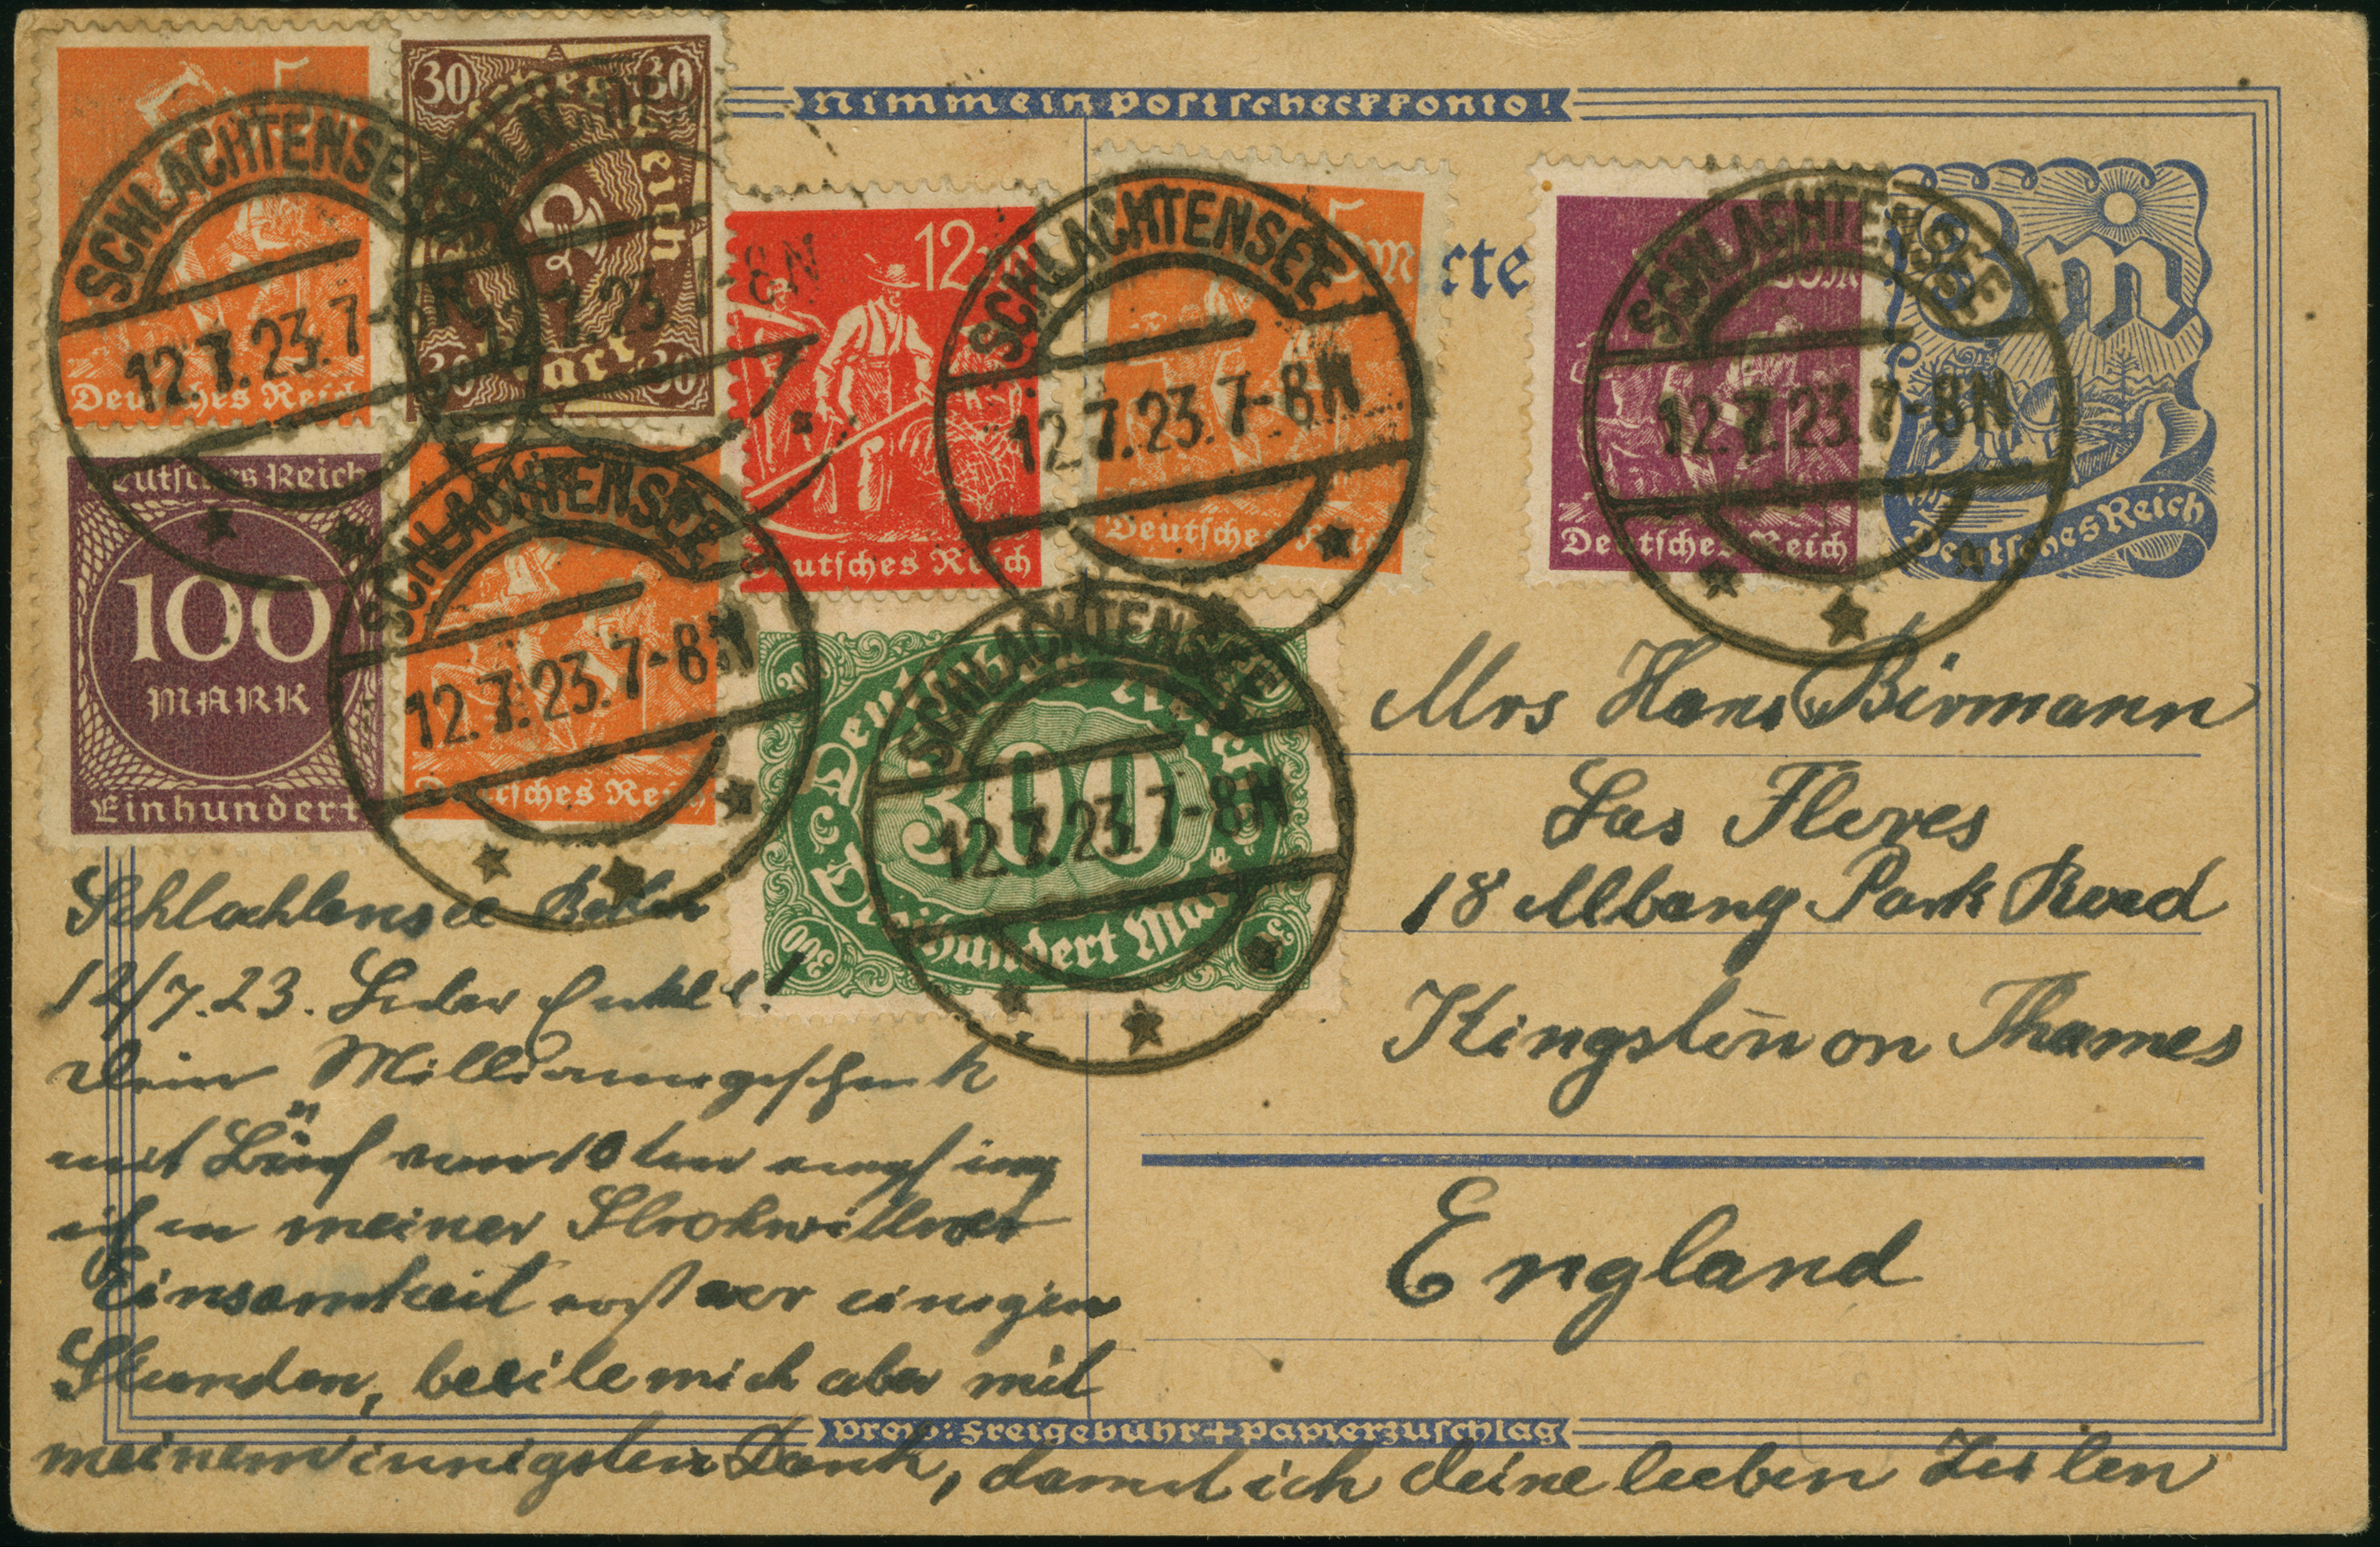 Nimm ein Postscheckkonto!
5
30 30
eich
30 Mark 30
Deutsches Reich
12M
Deutsches Reich
5M
Deutsches Reich
rte
20M
Deutsches Reich
8m
Deutsches Reich
Deutsches Reich
100
MARK
Einhundert
Deutsches Reich
Deutsches Reich
300
Dreihundert Mark
300
SCHLACHTENSEE
12.7.23.7-8N
SCHLACHTENSEE
12.7.23.7-8N
SCHLACHTENSEE
12.7.23.7-8N
SCHLACHTENSEE
12.7.23.7-8N
SCHLACHTENSEE
12.7.23.7-8N
SCHLACHTENSEE
12.7.23.7-8N
Mrs Hans Birmann
Las Flores
18 Albany Park Road
Kingston on Thames
England
Schlachtensee Berlin
12/7.23. Lieber
Dein Millionengeschenk
mit Brief vom 10ten empfing
ich in meiner Strohwittwer
Einsamkeit erst vor einigen
Stunden, beeile mich aber mit
meinem innigsten Dank, damit ich deine lieben Zeilen
Preis: Freigebühr + Papierzuschlag